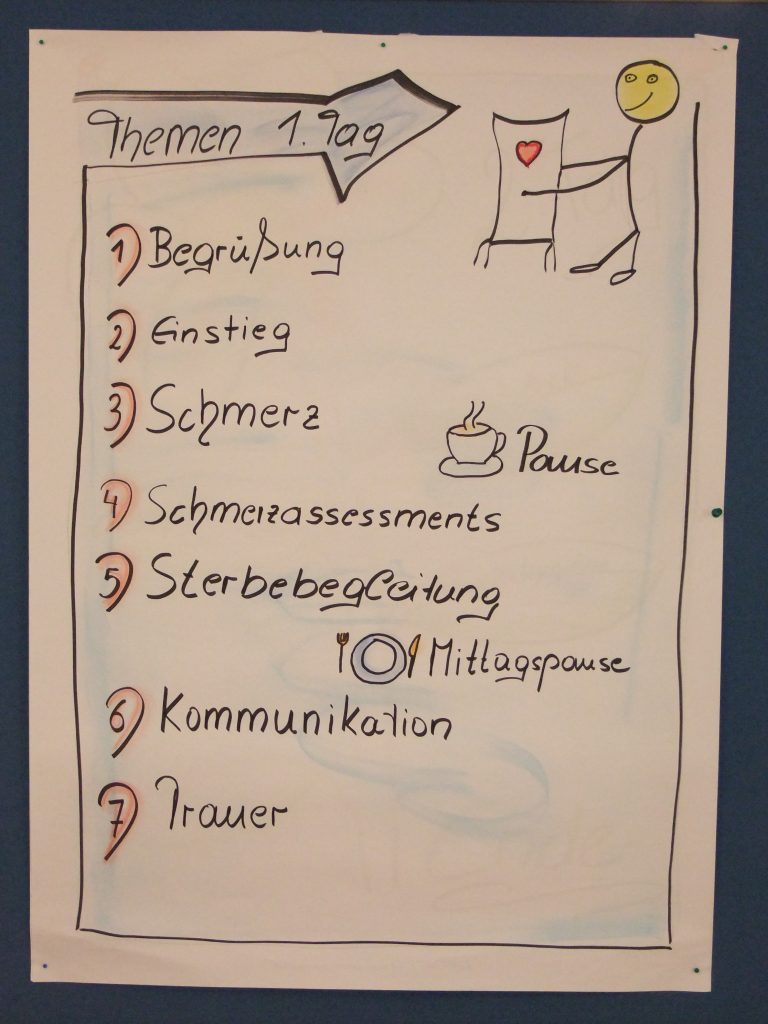 Themen 1. Tag
1 Begrüßung
2 Einstieg
3 Schmerz
Pause
4 Schmerzassessments
5 Sterbebegleitung
Mittagspause
6 Kommunikation
7 Trauer